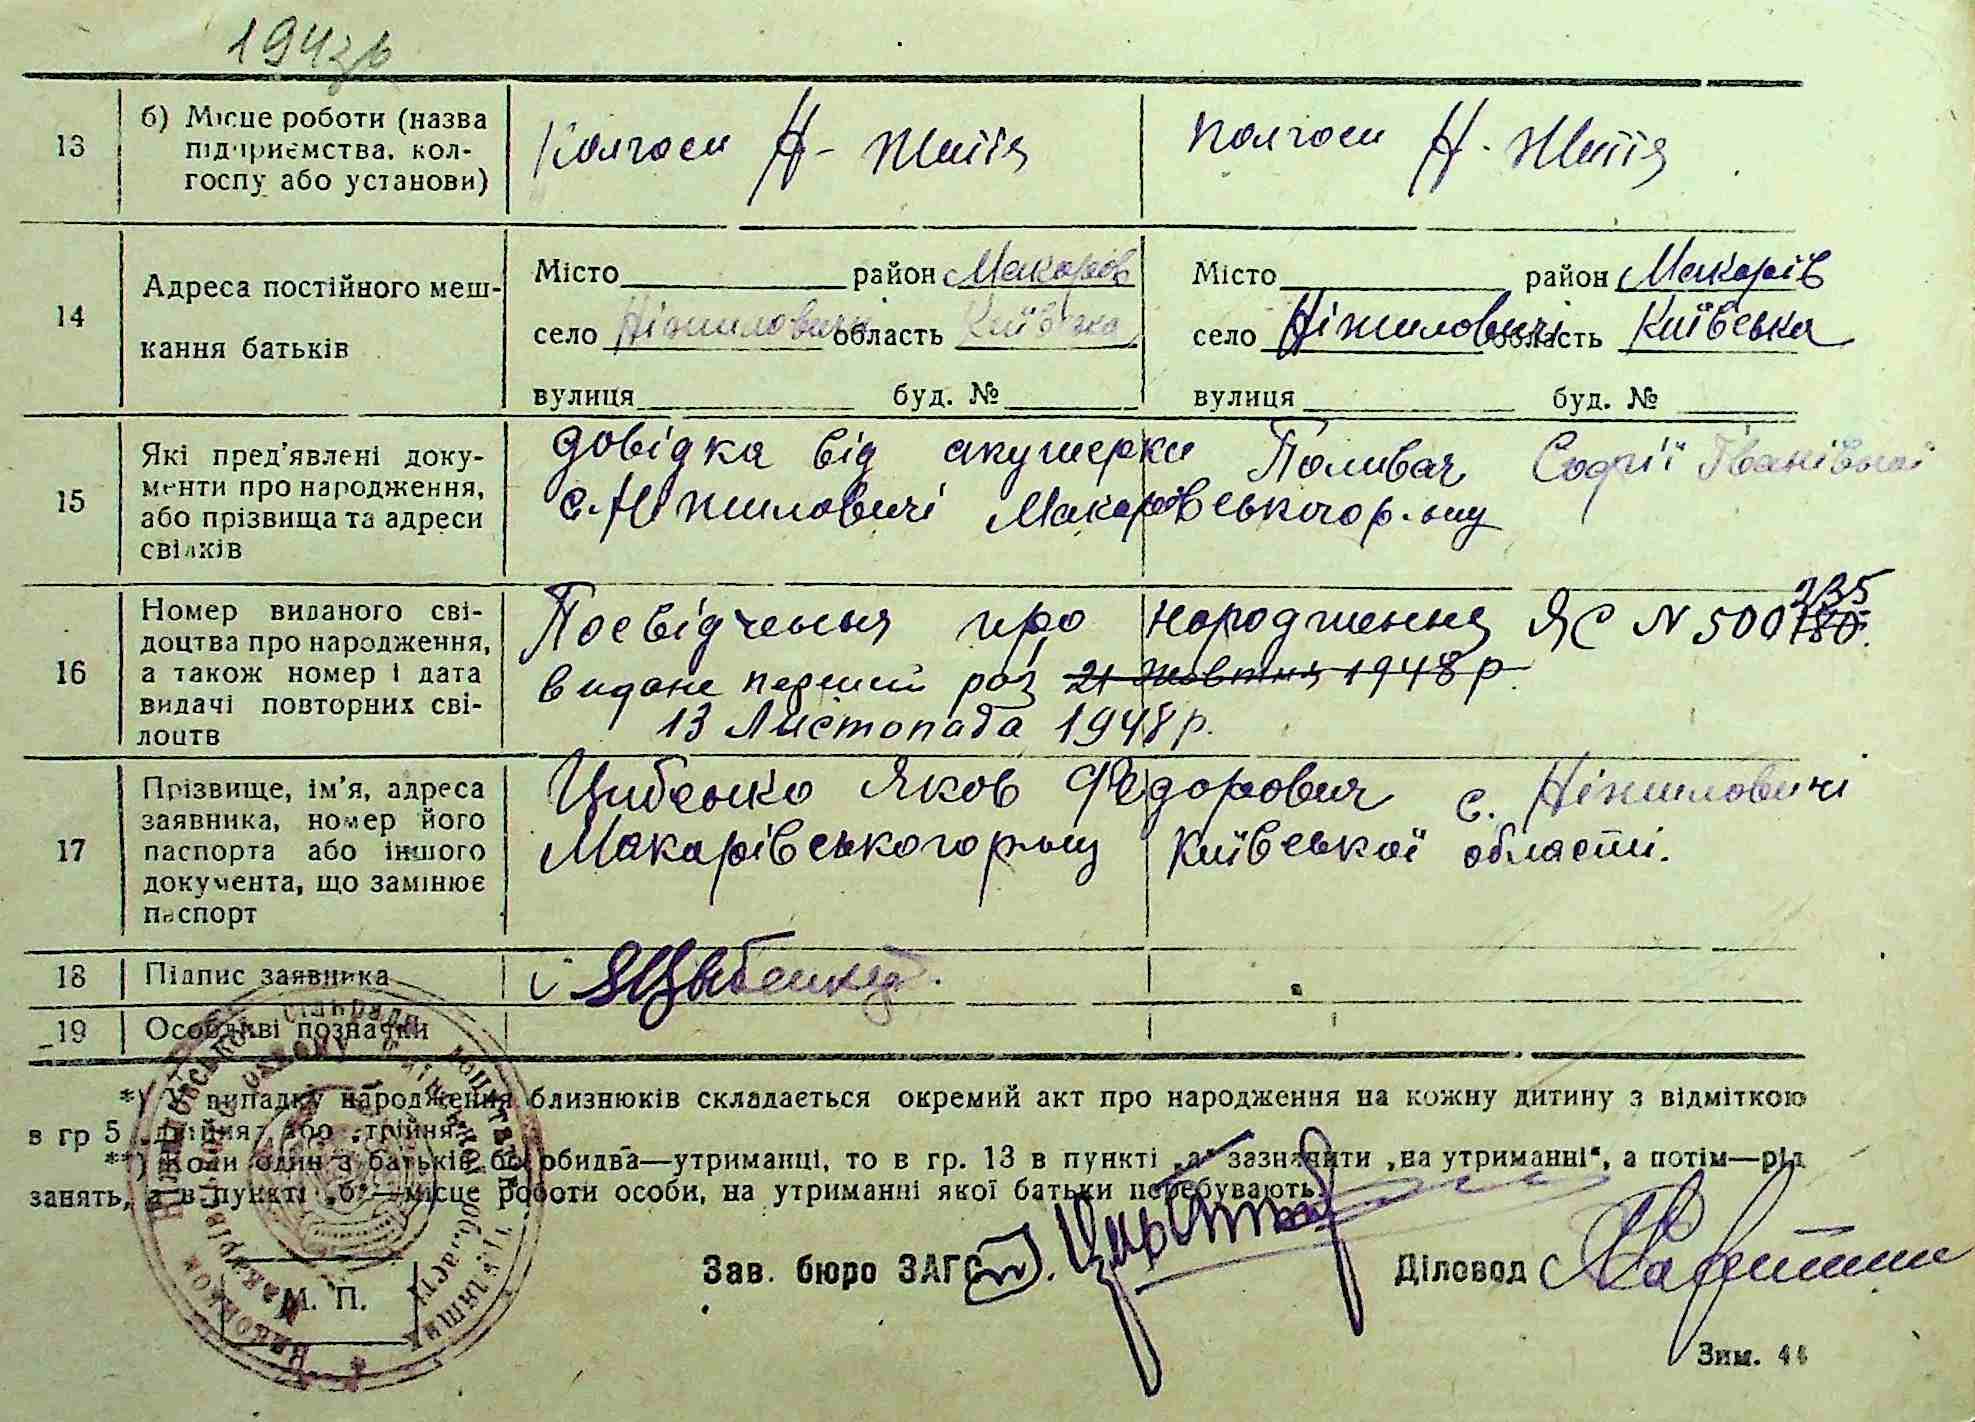 13
б) Місце роботи (назва
підприємства, кол-
госпу або установи)
Колгосп Н - Життя
Колгосп Н. Життя
14
Адреса постійного меш-
кання батьків
Місто район Макарів
село Ніжиловичі область Київська
вулиця буд. №
Місто район Макарів
село Ніжиловичі область Київська
вулиця буд. №
15
Які пред'явлені доку-
менти про народження,
або прізвища та адреси
свідків
довідка від акушерки Поливач Софії Іванівної
с. Ніжиловичі Макарівського р-ну
16
Номер виданого сві-
доцтва про народження,
а також номер і дата
видачі повторних сві-
доцтв
235
Посвідчення про народження ЯС N 500180.
видане перший раз 21 жовтня 1948 р.
13 Листопада 1948 р.
17
Прізвище, ім'я, адреса
заявника, номер його
паспорта або іншого
документа, що замінює
паспорт
Цибенко Яков Федорович с. Ніжиловичі
Макарівського р-ну Київської області.
18
Підпис заявника
19
Особливі позначки
*) У випадку народження близнюків складається окремий акт про народження на кожну дитину з відміткою
в гр 5 „двійня" або „трійня".
**) Коли один з батьків, бо обидва—утриманці, то в гр. 13 в пункті „а" зазначити „на утриманні", а потім—рід
занять, а в пункті „б"—місце роботи особи, на утриманні якої батьки перебувають.
Зав. бюро ЗАГС
Діловод
М. П.
Зим. 44